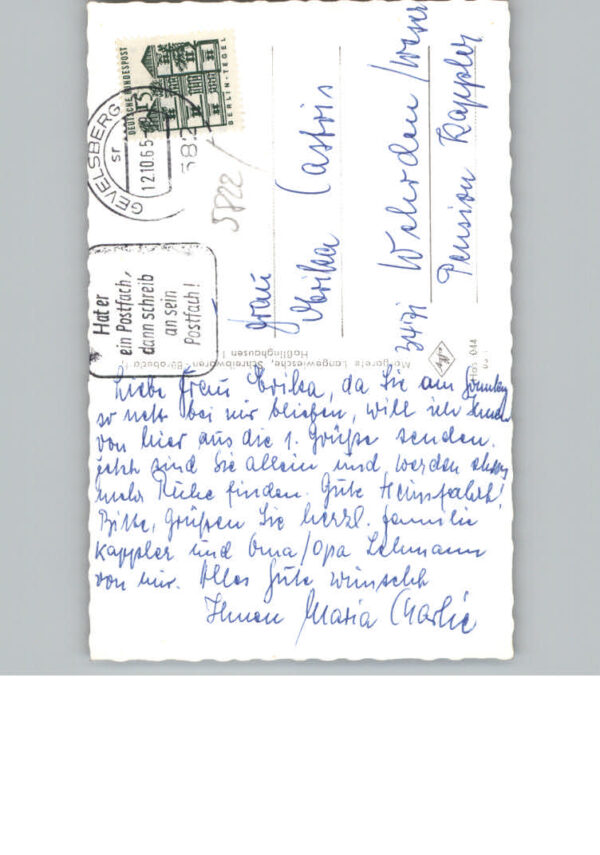 DEUTSCHE BUNDESPOST
15
BERLIN-TEGEL
GEVELSBERG
sr
12.10.65
582
5822
Hat er
ein Postfach,
dann schreib
an sein
Postfach!
Frau
Erika Castris
3471 Wehrden/Weser
Pension Kappler
Margarete Langewiesche, Schreibwaren - Bürobedarf,
Haßlinghausen
044
Liebe Frau Erika, da Sie am Sonntag
so nett bei mir blieben, will ich Ihnen
von hier aus die 1. Grüße senden.
Jetzt sind Sie allein und werden etwas
mehr Ruhe finden. Gute Heimfahrt!
Bitte, Grüßen Sie herzl. Familie
Kappler und Oma/Opa Lehmann
von mir. Alles Gute wünscht
Ihnen Maria